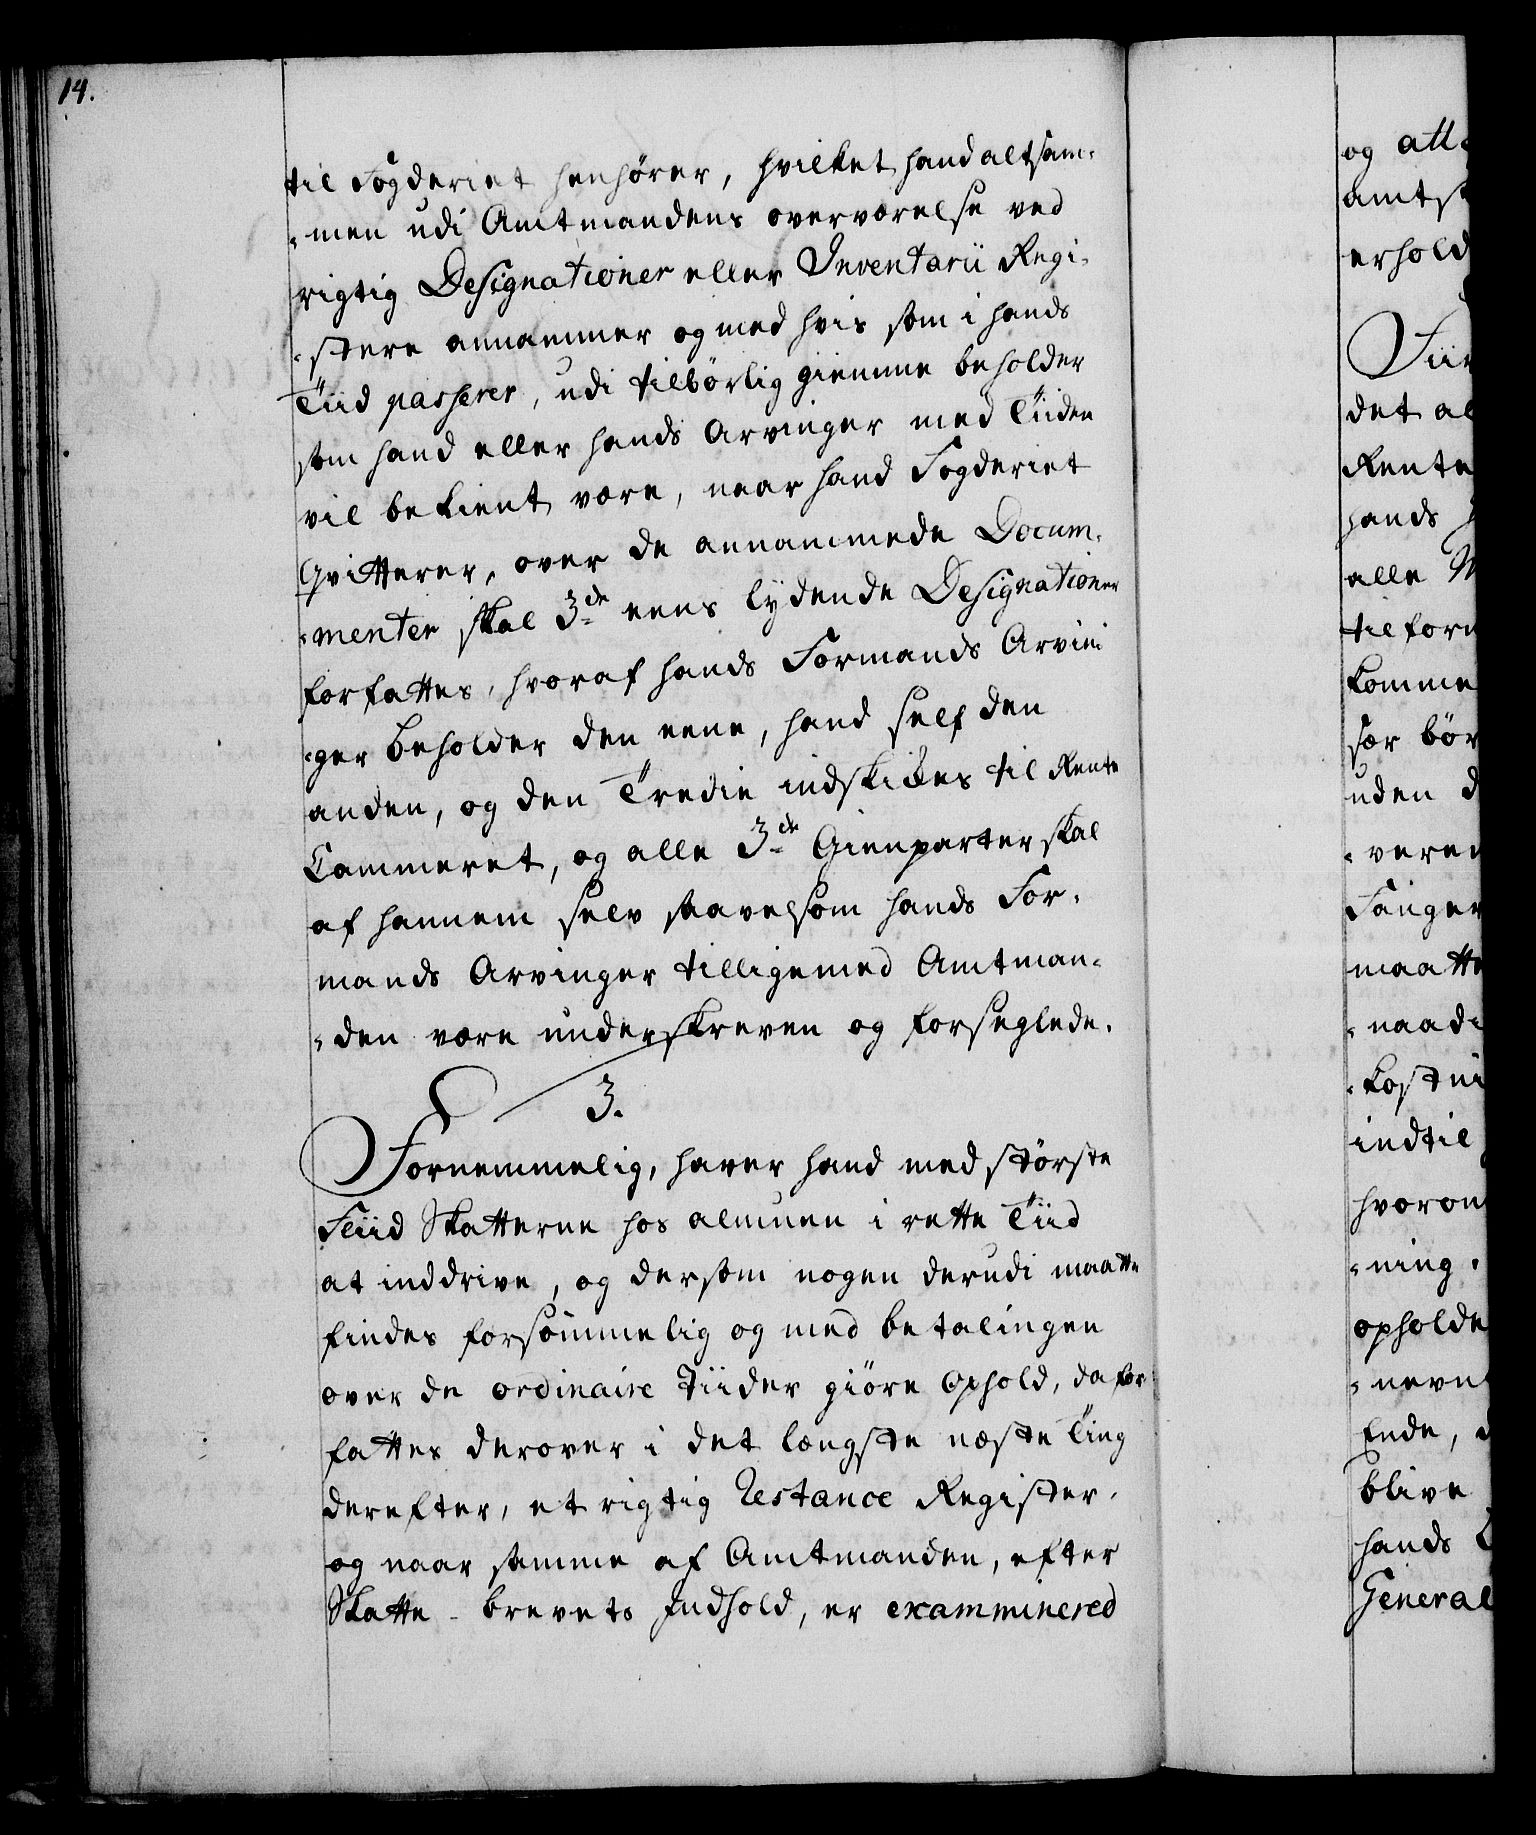 14.
til Fogderiet henhører, hvilket hand altsam-
-men udi Amtmandens overværelse ved
rigtig Designationer eller Inventarii Regi-
-stere annammer og med hvis som i hands
Tiid passerer, udi tilbørlig giemme beholder
som hand eller hands Arvinger med Tiiden
vil bekient være, naar hand Fogderiet
Qvitterer, over de annammede Docum-
-menter skal 3de eens lydende Designationer
forfattes, hvoraf hands Formands Arvin-
-ger beholder den eene, hand self den
anden, og den Tredie indskikes til Rente
Cammeret, og alle 3de Gienparter skal
af hannem selv saavelsom hands For-
mands Arvinger tilligemed Amtman-
-den være underskreven og forseglede.
3.
Fornemmelig, haver hand med største
Fliid Skatterne hos almuen i rette Tiid
at inddrive, og dersom nogen derudi maatte
findes forsømmelig og med betalingen
over de ordinaire Tiider giøre Ophold, da for-
fattes derover i det længste næste Ting
derefter, et rigtig Restance Register,
og naar samme af Amtmanden, efter
Skatte-brevets Indhold, er examminered
og att
amts
erhold
det al
Rente
hands
alle
tilforn
komme
sær bør
uden d
-veren
Fanger
maatte
-naadi
-kostni
indtil
hvorom
-ning.
opholde
-nevn
Ende,
blive
hands
General